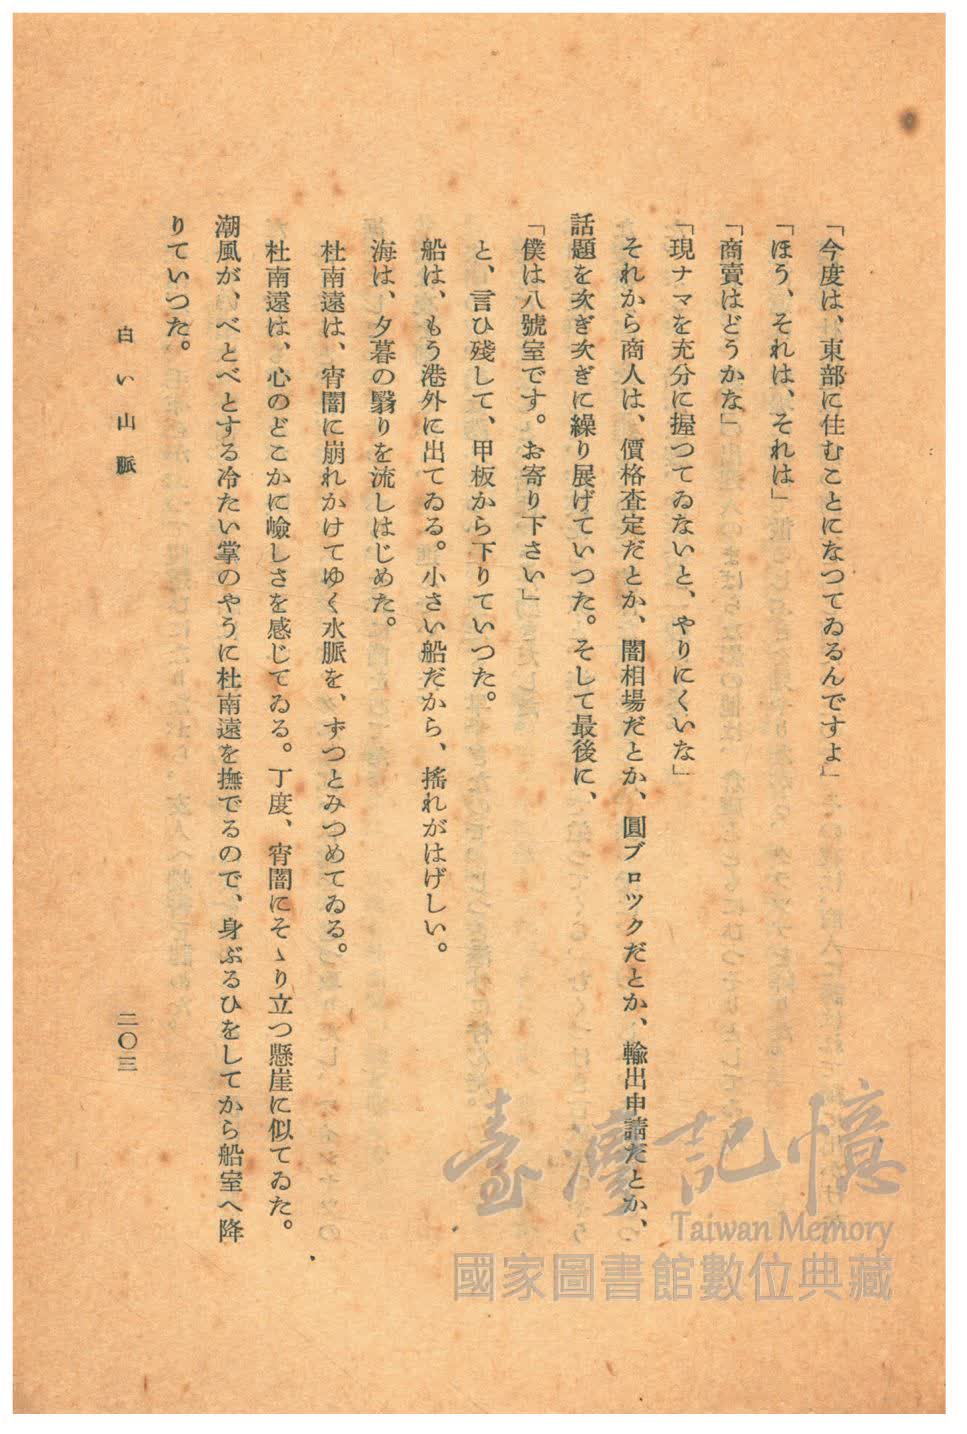 「今度は、東部に住むことになつてゐるんですよ」
「ほう、それは、それは」
「商賣はどうかな」
「現ナマを充分に握つてゐないと、やりにくいな」
それから商人は、價格査定だとか、闇相場だとか、圓ブロツクだとか、輸出申請だとか、
話題を次ぎ次ぎに繰り展げていつた。そして最後に、
「僕は八號室です。お寄り下さい」
と、言ひ殘して、甲板から下りていつた。
船は、もう港外に出てゐる。小さい船だから、搖れがはげしい。
海は、夕暮の翳りを流しはじめた。
杜南遠は、宵闇に崩れかけてゆく水脈を、ずつとみつめてゐる。
杜南遠は、心のどこかに嶮しさを感じてゐる。丁度、宵闇にそゝり立つ懸崖に似てゐた。
潮風が、べとべとする冷たい掌のやうに杜南遠を撫でるので、身ぶるひをしてから船室へ降
りていつた。
白い山脈
二〇三
臺灣記憶
Taiwan Memory
國家圖書館數位典藏